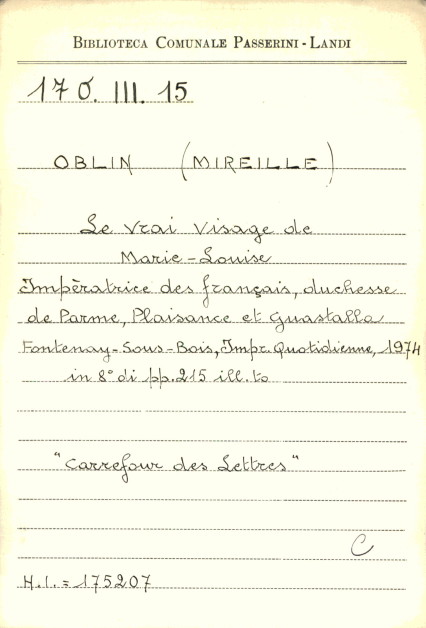 BIBLIOTECA COMUNALE PASSERINI - LANDI
170. III. 15
OBLIN (MIREILLE)
Le vrai visage de
Marie-Louise
Impèratrice des français, duchesse
de Parme, Plaisance et Guastalla
Fontenay-Sous-Bois, Impr. Quotidienne, 1974
in 8° di pp. 215 ill.to
"Carrefour des Lettres"
C
H.I. = 175207